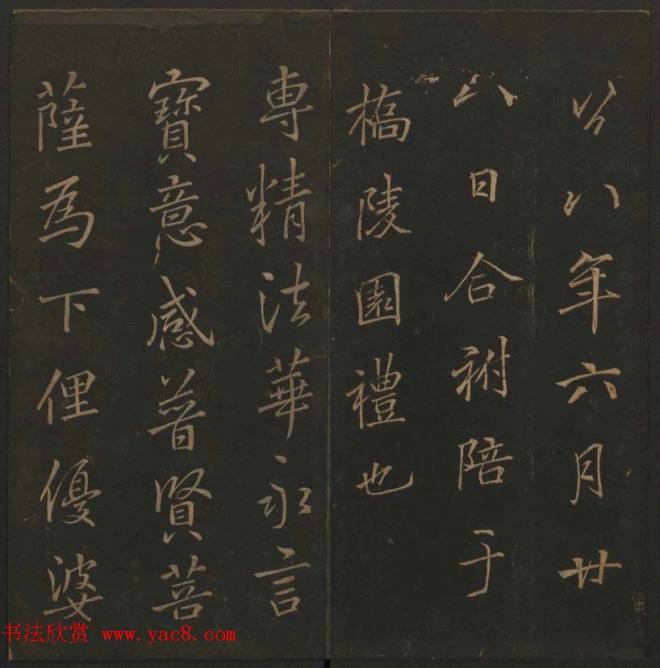 以八年六月廿
八日合祔陪于
橋陵園禮也
専精法華永言
寶意感普賢菩
薩為下俚優婆
书法欣赏 www.yac8.com